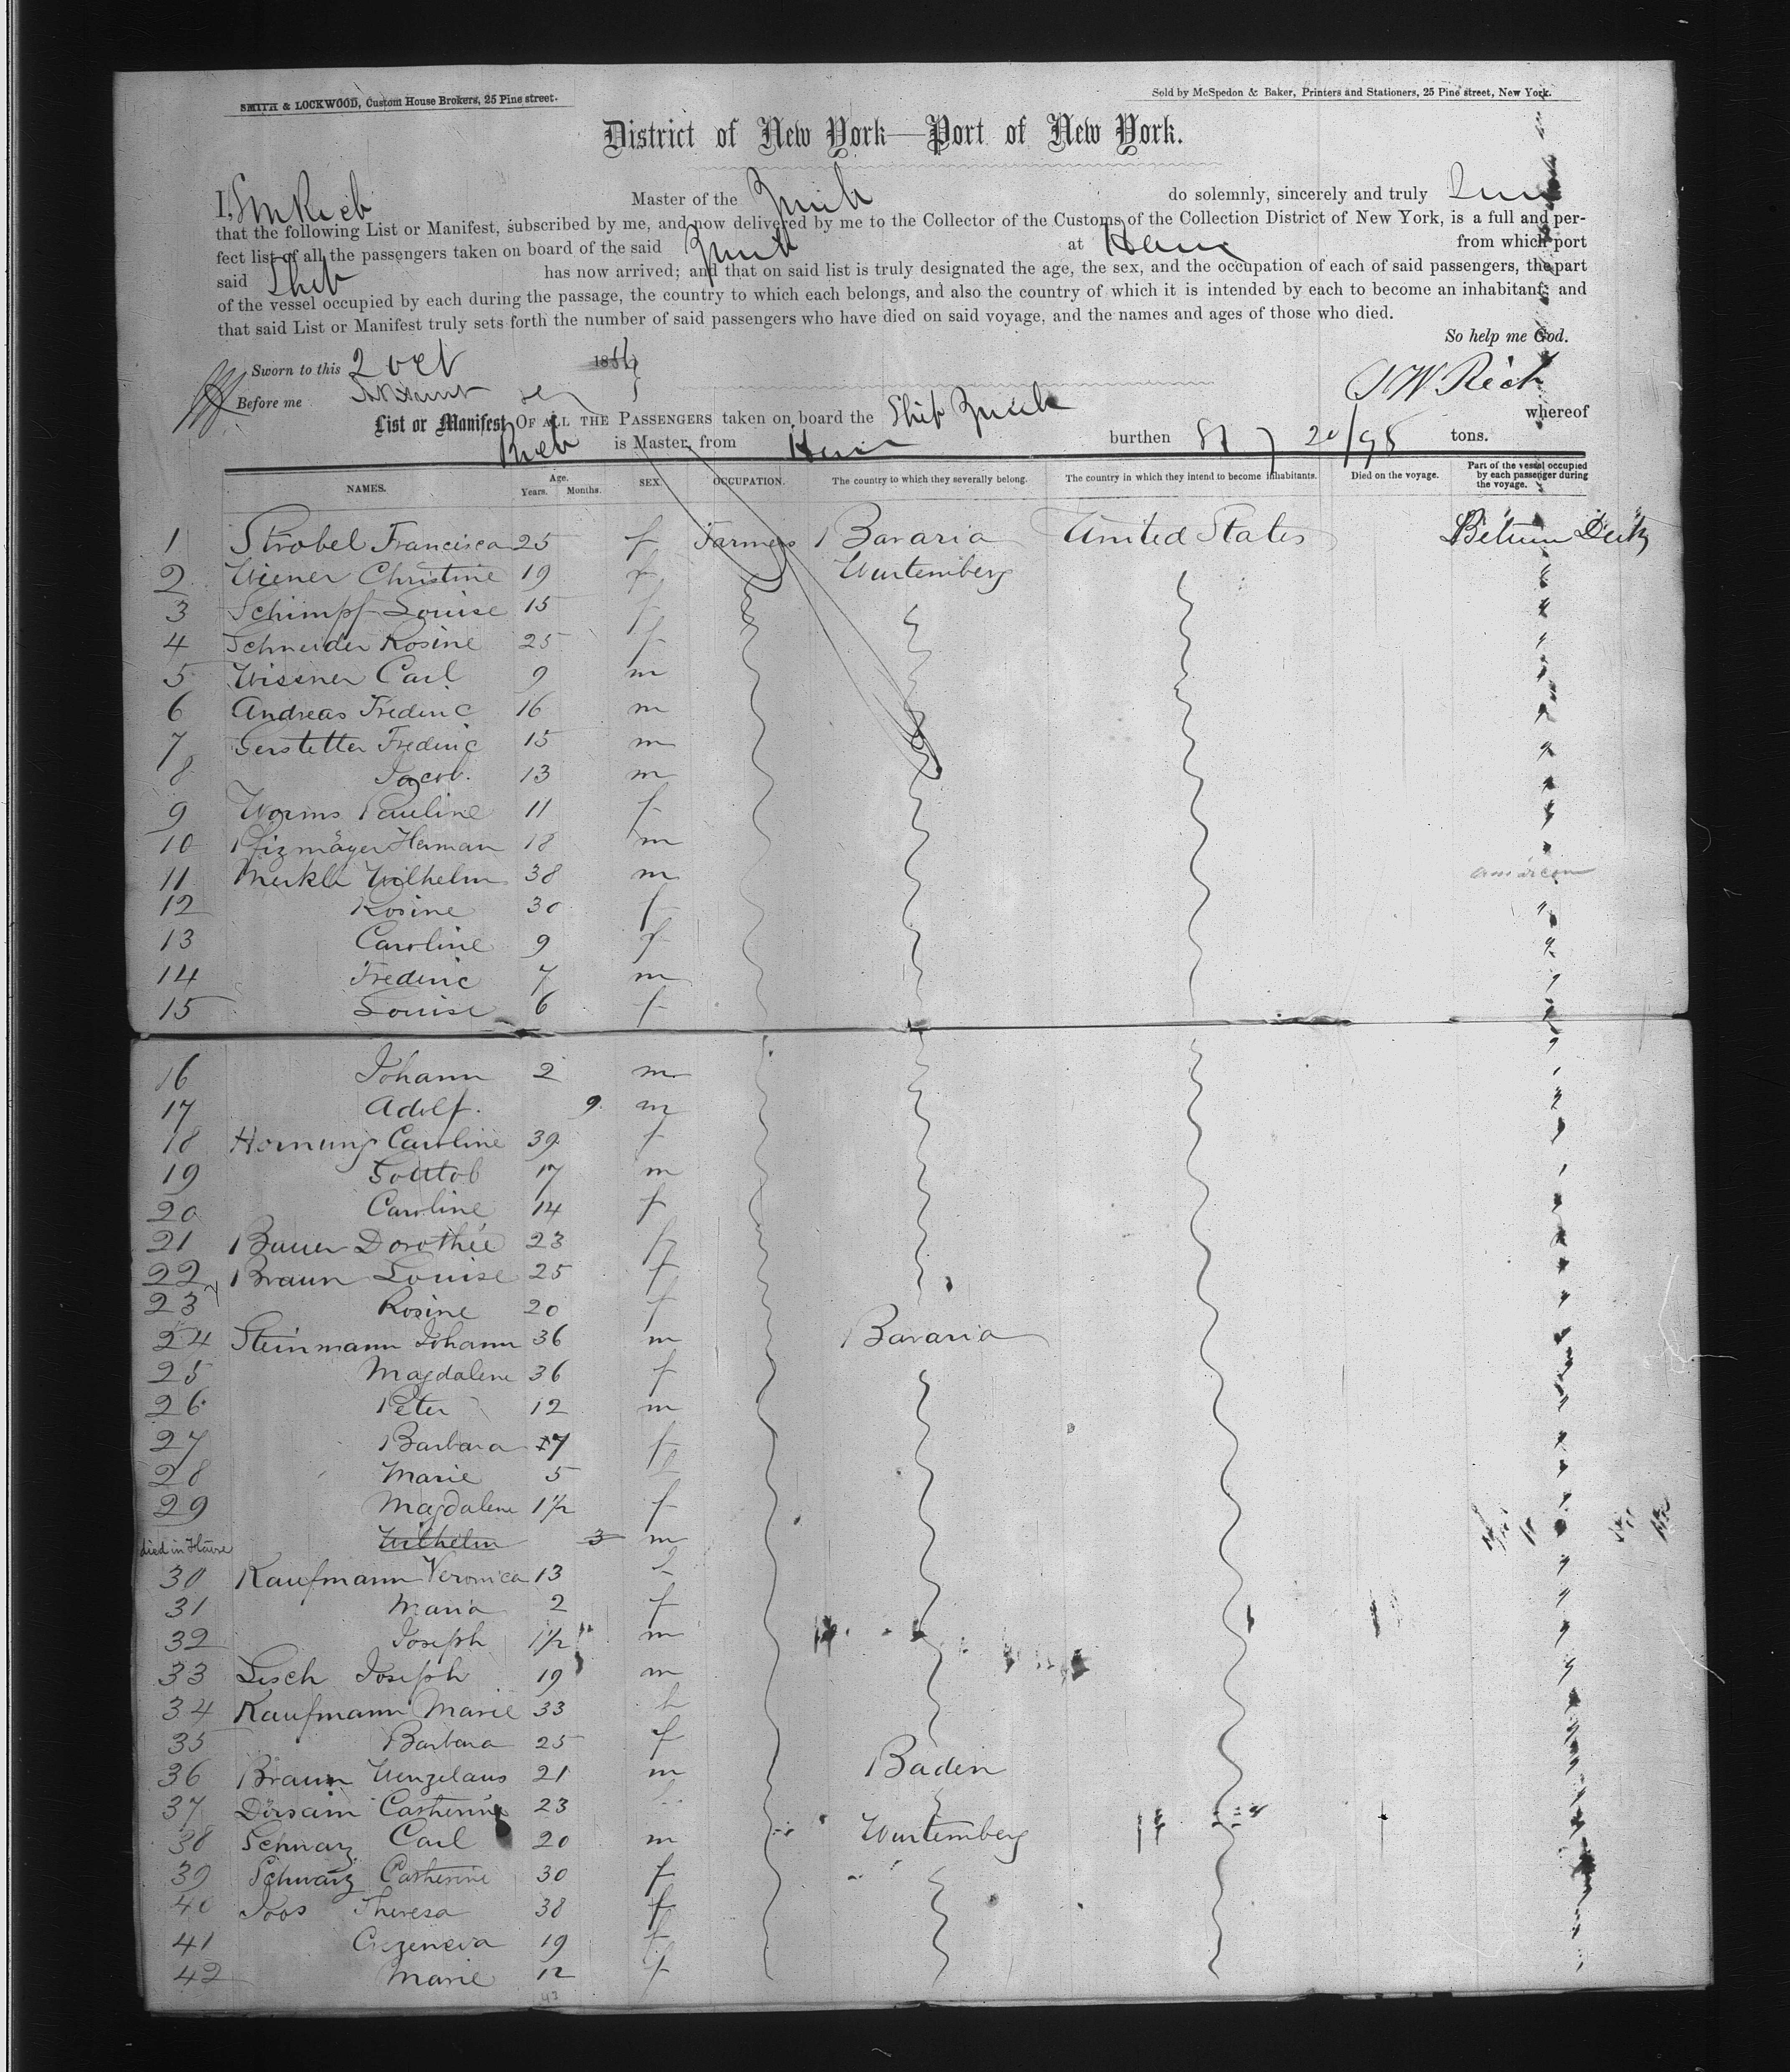 SMITH & LOCKWOOD, Custom House Brokers, 25 Pine street.
Sold by McSpedon & Baker, Printers and Stationers, 25 Pine street, New York.
District of New York—Port of New York.
I, Master of the do solemnly, sincerely and truly
that the following List or Manifest, subscribed by me, and now delivered by me to the Collector of the Customs of the Collection District of New York, is a full and per-
fect list of all the passengers taken on board of the said at from which port
said Ship has now arrived; and that on said list is truly designated the age, the sex, and the occupation of each of said passengers, the part
of the vessel occupied by each during the passage, the country to which each belongs, and also the country of which it is intended by each to become an inhabitant; and
that said List or Manifest truly sets forth the number of said passengers who have died on said voyage, and the names and ages of those who died.
So help me God.
Sworn to this 2 Oct 18
Before me
S W Rich
List or Manifest OF ALL THE PASSENGERS taken on board the Ship whereof
Rich is Master, from burthen 20/95 tons.
NAMES. Age. Years. Months. SEX. OCCUPATION. The country to which they severally belong. The country in which they intend to become inhabitants. Died on the voyage. Part of the vessel occupied by each passenger during the voyage.
1 Strobel Francisca 25 f Farmers Bavaria United States Betwen Deck
2 Wiener Christine 19 f Wurtemberg
3 Schimpf Louise 15 f
4 Schneider Rosine 25 f
5 Wissner Carl 9 m
6 Andreas Frederic 16 m
7 Gerstetter Frederic 15 m
8 Jacob. 13 m
9 Worms Pauline 11 f
10 Pfizmäyer Herman 18 m
11 Merkle Wilhelm 38 m
12 Rosine 30 f
13 Caroline 9 f
14 Frederic 7 m
15 Louise 6 f
16 Johann 2 m
17 Adolf. 9 m
18 Hornung Caroline 39 f
19 Gottlob 17 m
20 Caroline 14 f
21 Bauer Dorothée 23 f
22 Braun Louise 25 f
23 Rosine 20 f
24 Steinmann Johann 36 m Bavaria
25 Magdalene 36 f
26 Peter 12 m
27 Barbara 7 f
28 Marie 5 f
29 Magdalene 1½ f
died in Havre Wilhelm 3 m
30 Kaufmann Veronica 13
31 Maria 2 f
32 Joseph 1½ m
33 Lesch Joseph 19 m
34 Kaufmann Marie 33
35 Barbara 25 f
36 Braun Wenzelaus 21 m Baden
37 Dörsam Catherine 23
38 Schwarz Carl 20 m Wurtemberg
39 Schwarz Catherine 30 f
40 Joos Theresa 38 f
41 19 f
42 Marie 12 f
43